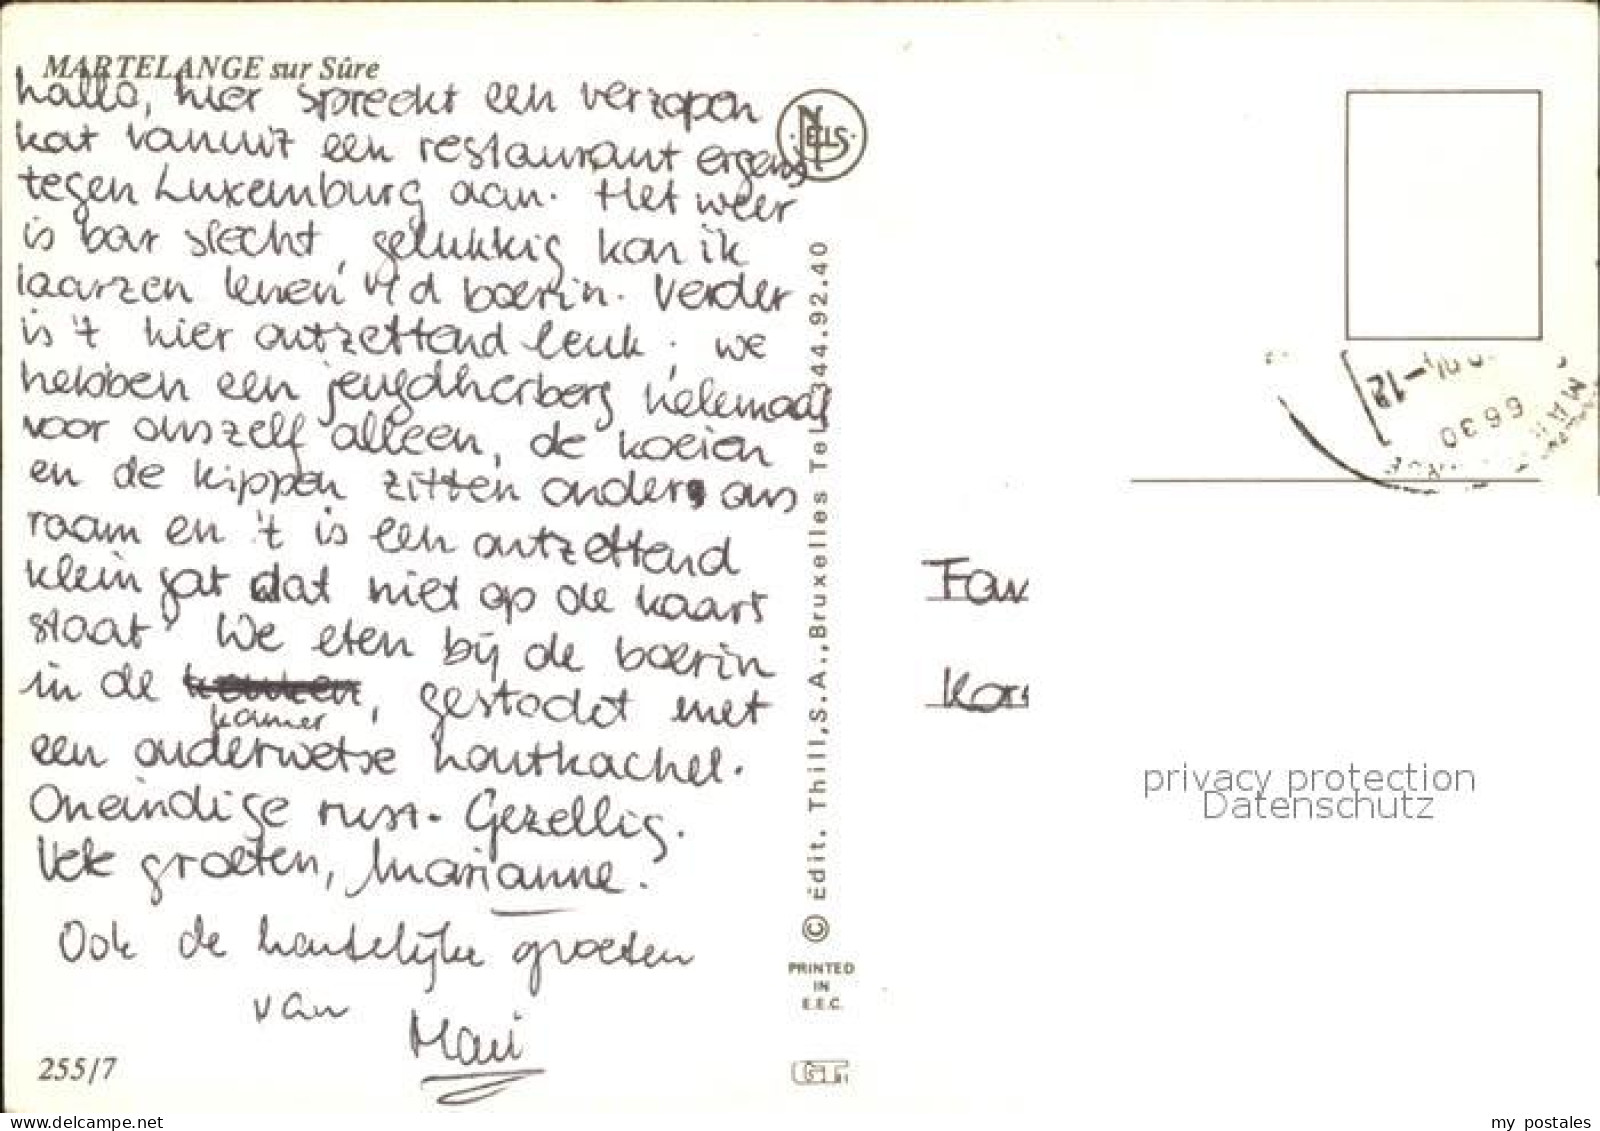 MARTELANGE sur Sûre
hallo, hier spreekt een verzopen
kat vanuit een restaurant ergens
tegen Luxemburg aan. Het weer
is bar slecht, gelukkig kan ik
laarzen lenen v/d boerin. Verder
is 't hier ontzettend leuk; we
hebben een jeugdherberg helemaal
voor onszelf alleen, de koeien
en de kippen zitten onder ons
raam en 't is een ontzettend
klein gat dat niet op de kaart
staat. We eten bij de boerin
in de keuken, gestookt met
kamer
een ouderwetse houtkachel.
Oneindige rust. Gezellig.
Vele groeten, Marianne.
Ook de hartelijke groeten
van
255/7
NELS
© Édit. Thill, S.A., Bruxelles Tel. 344.92.40
PRINTED
IN
E.E.C.
GT
6630
-12
Fam
privacy protection
Datenschutz
www.delcampe.net
my_postales